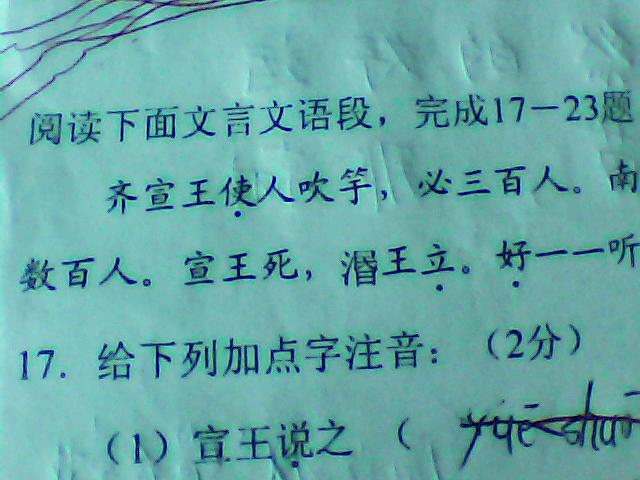 阅读下面文言文语段，完成17－23题
齐宣王使人吹竽，必三百人。南
数百人。宣王死，湣王立。好一一听
17. 给下列加点字注音：（2分）
（1）宣王说之 （ yuē shuō